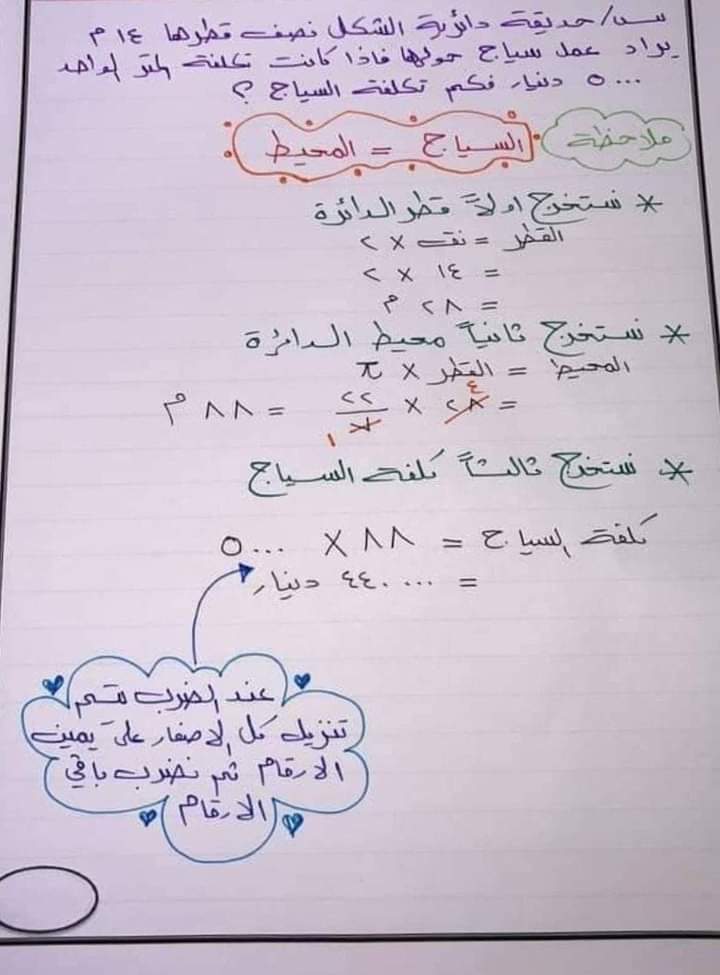 س/ حديقة دائرية الشكل نصف قطرها ١٤ م
يراد عمل سياج حولها فاذا كانت تكلفة المتر الواحد
٥٠٠٠ دينار فكم تكلفة السياج ؟
ملاحظة
السياج = المحيط
* نستخرج اولاً قطر الدائرة
القطر = نق × ٢
= ١٤ × ٢
= ٢٨ م
* نستخرج ثانياً محيط الدائرة
المحيط = القطر × π
= ٢٨ ٤ × ٢٢/٧ ١ = ٨٨ م
* نستخرج ثالثاً كلفة السياج
كلفة السياج = ٨٨ × ٥٠٠٠
= ٤٤٠٠٠٠ دينار
عند الضرب يتم
تنزيل كل الاصفار على يمين
الارقام ثم نضرب باقي
الارقام